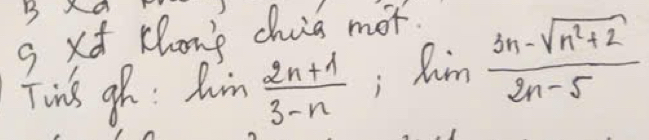 B Xđ
ς Xđ không chứa một.
Tính gh : lim \frac{2n+1}{3-n} ; lim \frac{3n-\sqrt{n^2+2}}{2n-5}